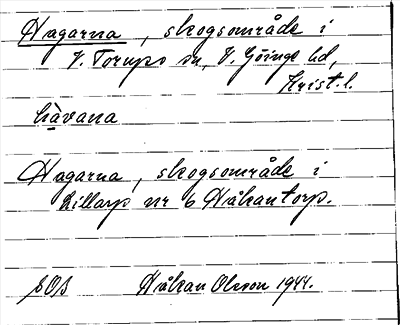 Hagarna, skogsområde i
V. Torups sn, V. Göinge hd,
Krist. l.
hàvana
Hagarna, skogsområde i
Lillarp nr 6 Håkantorp.
EOB Håkan Olsson 1944.